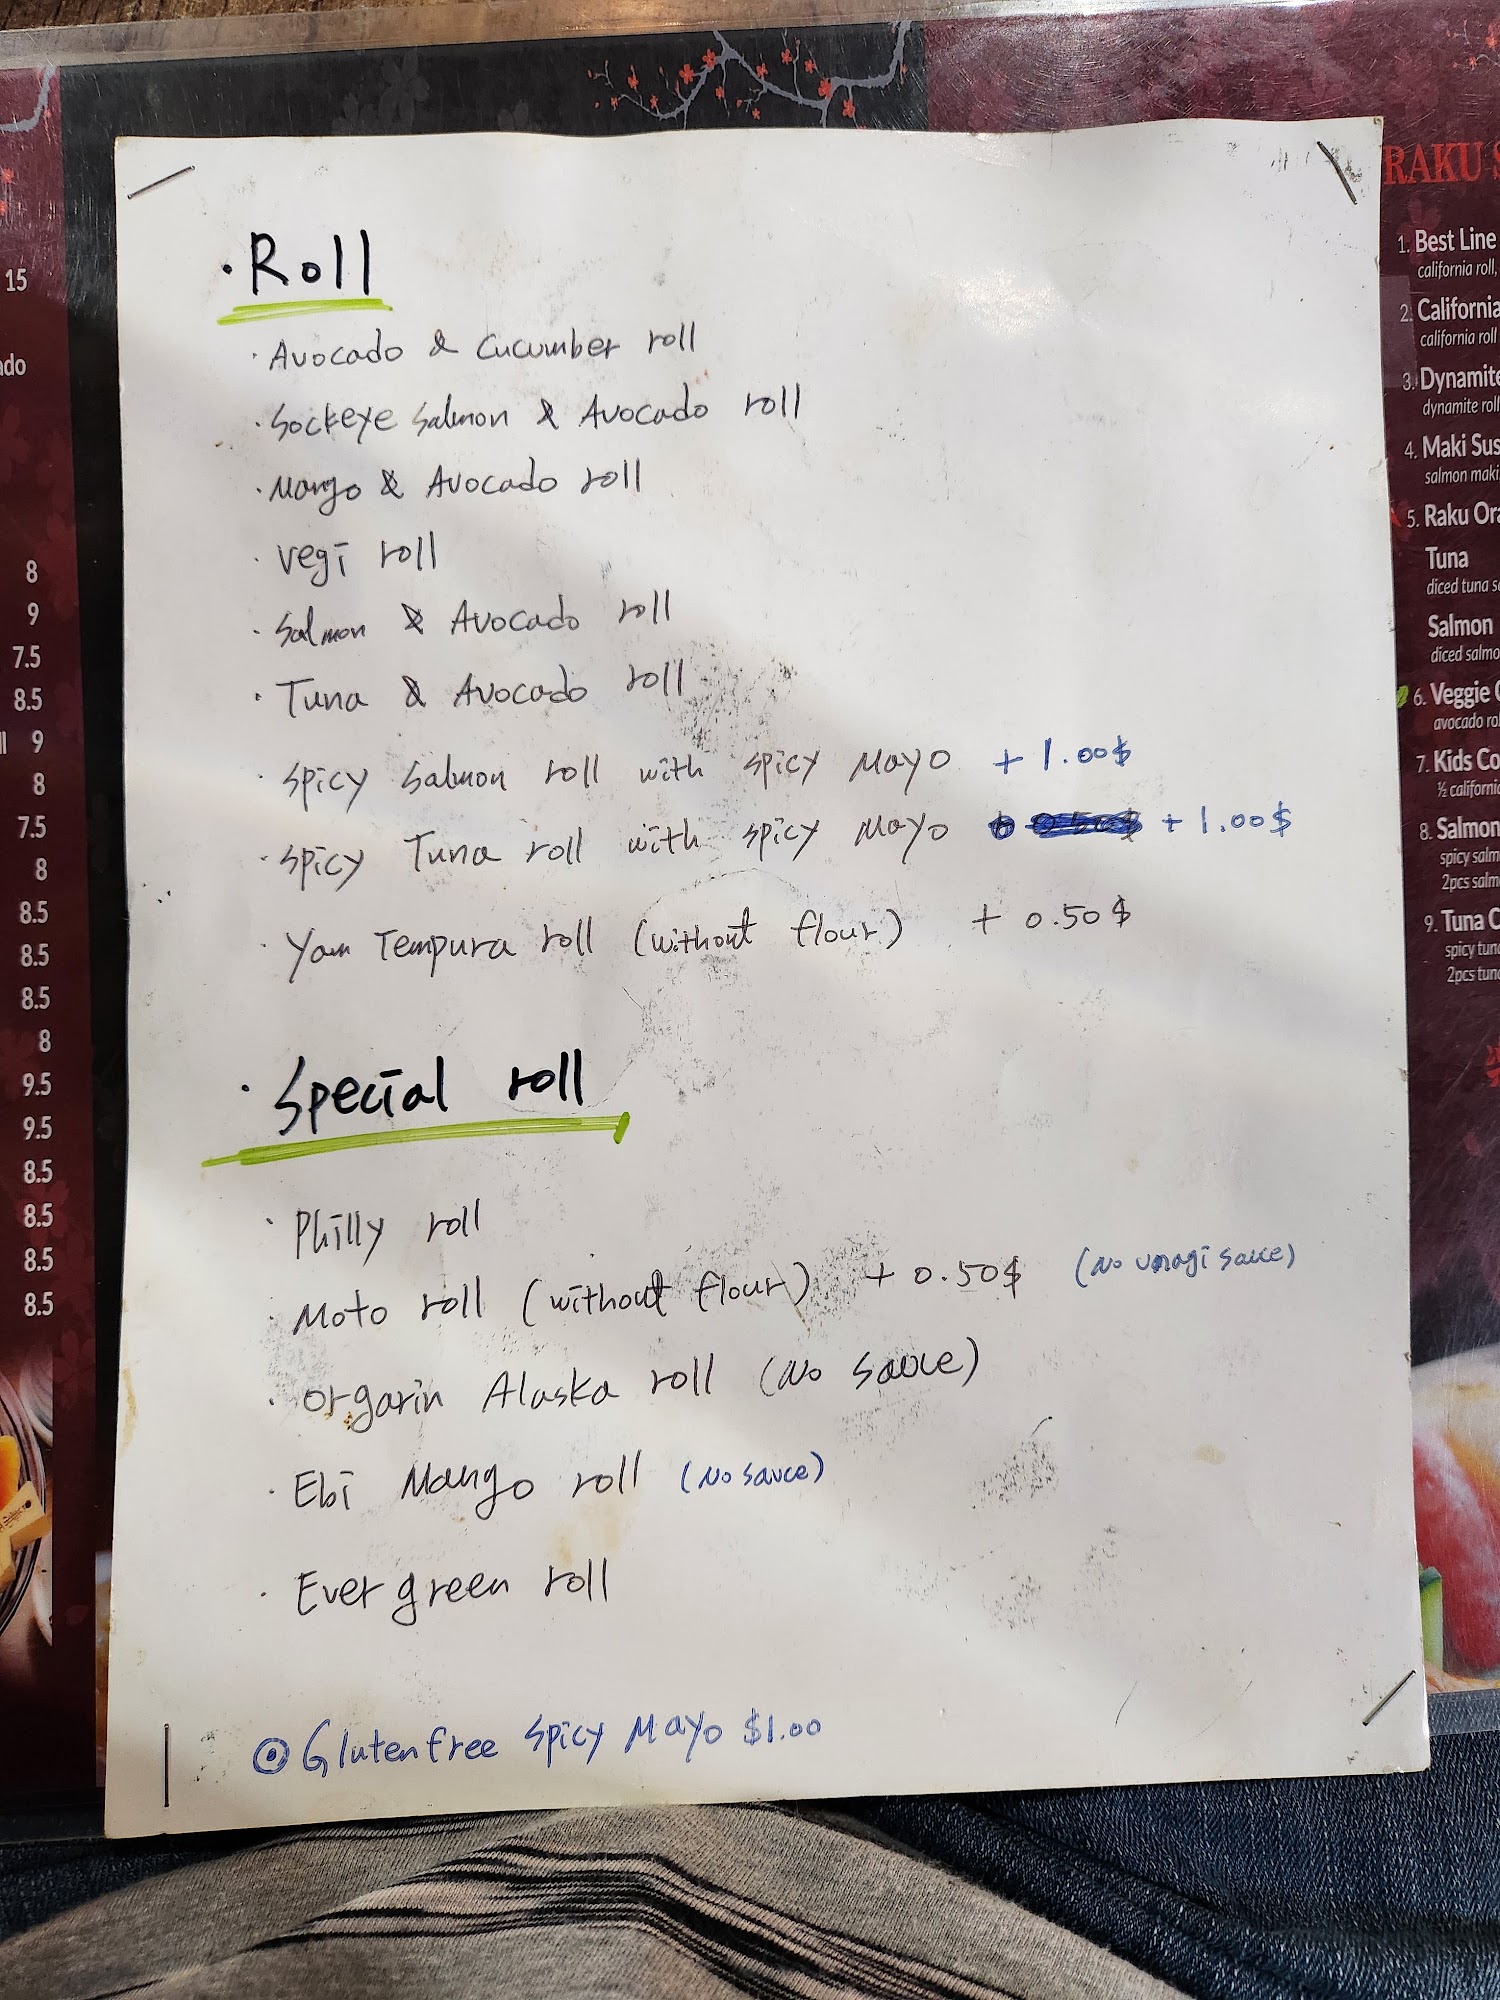 · Roll
· Avocado & Cucumber roll
· Sockeye Salmon & Avocado roll
· Mango & Avocado roll
· Vegi roll
· Salmon & Avocado roll
· Tuna & Avocado roll
· Spicy Salmon roll with spicy Mayo + 1.00$
· Spicy Tuna roll with spicy Mayo + 1.00$
· Yam Tempura roll (without flour) + 0.50$
· Special roll
· Philly roll
· Moto roll (without flour) + 0.50$ (No unagi sauce)
· Orgarin Alaska roll (No sauce)
· Ebi Mango roll (No sauce)
· Ever green roll
Gluten free Spicy Mayo $1.00
15
ado
8
9
7.5
8.5
ll 9
8
7.5
8
8.5
8.5
8.5
8
9.5
9.5
8.5
8.5
8.5
8.5
RAKU S
1. Best Line
california roll,
2. California
california roll
3. Dynamite
dynamite roll
4. Maki Sus
salmon maki,
5. Raku Ora
Tuna
diced tuna s
Salmon
diced salmo
6. Veggie C
avocado ro
7. Kids Co
½ californi
8. Salmon
spicy salm
2pcs salm
9. Tuna C
spicy tun
2pcs tun